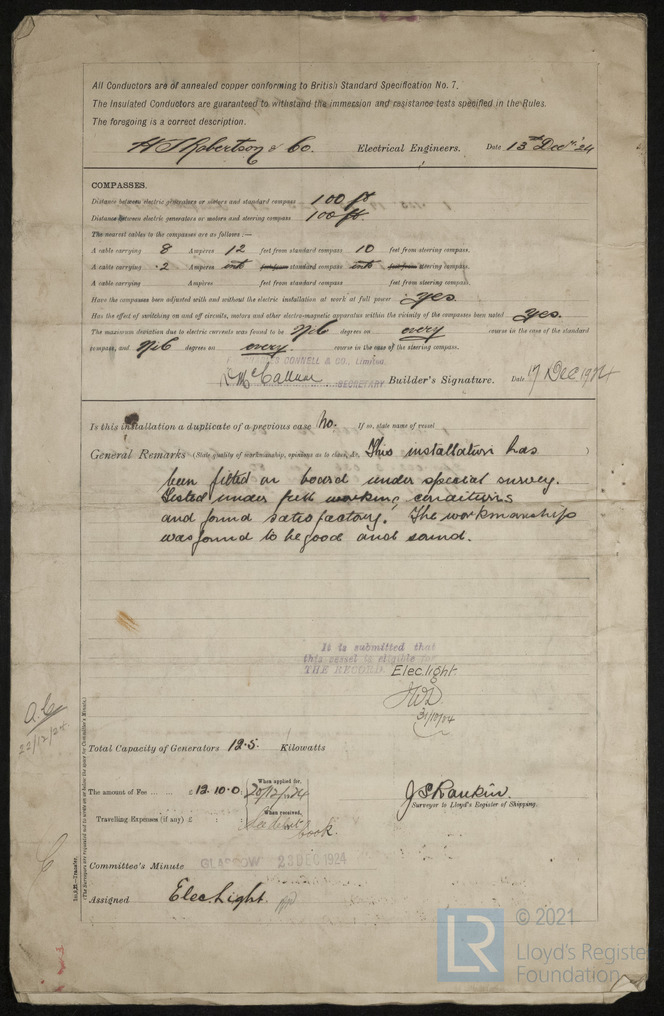 All Conductors are of annealed copper conforming to British Standard Specification No. 7.
The Insulated Conductors are guaranteed to withstand the immersion and resistance tests specified in the Rules.
The foregoing is a correct description.
Robertson & Co. Electrical Engineers. Date 13th Decr '24
COMPASSES.
Distance between electric generators or motors and standard compass 100 ft
Distance between electric generators or motors and steering compass 100 ft.
The nearest cables to the compasses are as follows:—
A cable carrying 8 Ampères 12 feet from standard compass 10 feet from steering compass.
A cable carrying .2 Ampères into feet from standard compass into feet from steering compass.
A cable carrying Ampères feet from standard compass feet from steering compass.
Have the compasses been adjusted with and without the electric installation at work at full power yes.
Has the effect of switching on and off circuits, motors and other electro-magnetic apparatus within the vicinity of the compasses been noted yes.
The maximum deviation due to electric currents was found to be Nil degrees on every course in the case of the standard
compass, and Nil degrees on every. course in the case of the steering compass.
CONNELL & CO., Limited.
McCallum SECRETARY Builder's Signature. Date 17 Dec 1924
Is this installation a duplicate of a previous case No. If so, state name of vessel
General Remarks (State quality of workmanship, opinions as to class, &c. This installation has )
been fitted on board under special survey.
Tested under full working conditions
and found satisfactory. The workmanship
was found to be good and sound.
It is submitted that
this vessel is eligible for
THE RECORD. Elec. light.
31/12/24
22/12/24
Total Capacity of Generators 12.5 Kilowatts
The amount of Fee ... ... £ 12.10.0 When applied for, 20/12/24
J S Rankin.
Surveyor to Lloyd's Register of Shipping.
Travelling Expenses (if any) £ : : When received,
book.
Committee's Minute GLASGOW 23 DEC 1924
Assigned Elec. Light.
(The Surveyors are requested not to write on or below the space for Committee's Minute.)
LR
© 2021
Lloyd's Register
Foundation